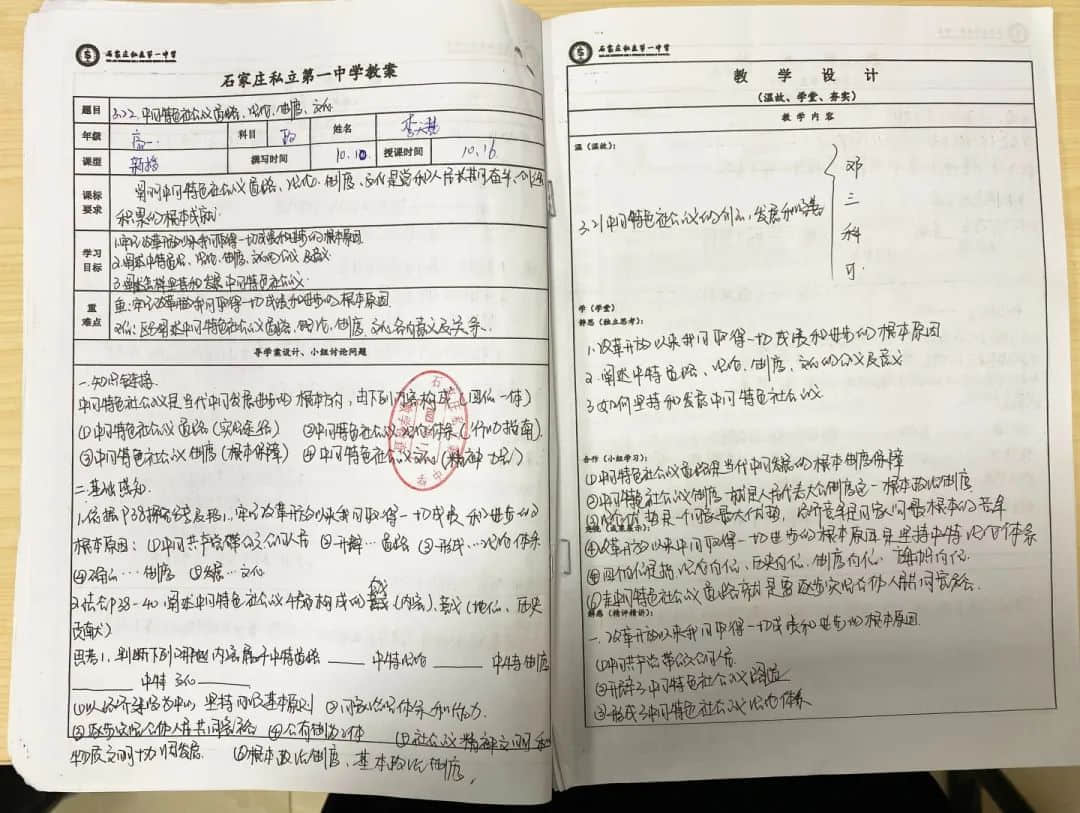 石家庄私立第一中学
石家庄私立第一中学教案
题目 3.2.2 中国特色社会主义道路、理论、制度、文化
年级 高一 科目 政 姓名 李
课型 新授 撰写时间 10.10 授课时间 10.16
课标要求 阐明中国特色社会主义道路、理论、制度、文化是党和人民长期奋斗、创造
积累的根本成就
学习目标 1.牢记改革开放以来我国取得一切成绩和进步的根本原因
2.阐述中特道路、理论、制度、文化的含义及意义
3.阐述怎样坚持和发展中国特色社会主义
重难点 重:牢记改革开放我国取得一切成绩和进步的根本原因
难:区分阐述中国特色社会主义道路、理论、制度、文化各自意义及关系
导学案设计、小组讨论问题
一.知识链接.
中国特色社会主义是当代中国发展进步的根本方向,由下列内容构成(四位一体)
①中国特色社会主义道路(实现途径) ②中国特色社会主义理论体系(行动指南)
③中国特色社会主义制度(根本保障) ④中国特色社会主义文化(精神力量)
二.基础感知.
1.依据P38探究与 牢记改革开放以来我国取得一切成绩和进步的
根本原因:①中国共产党带领全国人民 ②开辟…道路 ③形成…理论体系
④确立…制度 ⑤发展…文化
2.结合P38-40,阐述中国特色社会主义4部构成的含义(内容)、意义(地位、历史
贡献)
思考1.判断下列哪些内容属于中特道路 中特理论 中特制度
中特文化
①以经济建设为中心,坚持四项基本原则 ②国家治理体系和能力
③逐步实现全体人民共同富裕 ④公有制为主体 ⑤社会主义精神文明和
物质文明协调发展 ⑥根本政治制度、基本政治制度
石家庄私立第一中学
教 学 设 计
(温故、学堂、夯实)
教 学 内 容
温(温故):
3.2.1中国特色社会主义的创立、发展和完善
邓
三
科
习
学(学堂)
群思(独立思考):
1.改革开放以来我国取得一切成绩和进步的根本原因
2.阐述中特道路、理论、制度、文化的含义及意义
3.如何坚持和发展中国特色社会主义
合作(小组学习):
①中国特色社会主义道路是当代中国发展的根本制度保障
②中国特色社会主义制度就是人民代表大会制度这一根本政治制度
③制度优势是一个国家最大优势,制度竞争是国家间最根本的竞争
(成果展示):
④改革开放以来中国取得一切进步的根本原因是坚持中特理论体系
④四个自信是指,理论自信、历史自信、制度自信、道路自信
⑥走中国特色社会主义道路就是要逐步实现全体人民共同富裕.
群思(精评精讲):
一.改革开放以来我国取得一切成绩和进步的根本原因
①中国共产党带领全国人民
②开辟了中国特色社会主义道路
③形成了中国特色社会主义理论体系